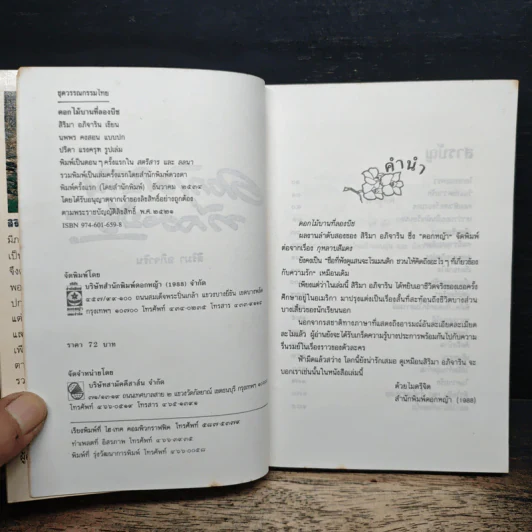 ชุดวรรณกรรมไทย
ดอกไม้บานที่ลองบีช
สิริมา อภิจาริน เขียน
นพพร คงสอน แบบปก
ปรีดา แรงครุฑ รูปเล่ม
พิมพ์เป็นตอน ๆ ครั้งแรกใน สตรีสาร และ ลลนา
รวมพิมพ์เป็นเล่มครั้งแรกโดยสำนักพิมพ์ดวงตา
พิมพ์ครั้งแรก (โดยสำนักพิมพ์) ธันวาคม ๒๕๓๔
โดยได้รับอนุญาตจากเจ้าของลิขสิทธิ์อย่างถูกต้อง
ตามพระราชบัญญัติลิขสิทธิ์ พ.ศ. ๒๕๒๑
ISBN 974-601-659-8
จัดพิมพ์โดย
บริษัทสำนักพิมพ์ดอกหญ้า (1988) จำกัด
ถนนสมเด็จพระปิ่นเกล้า แขวงบางยี่ขัน เขตบางพลัด
กรุงเทพฯ ๑๐๗๐๐ โทรศัพท์
ราคา 72 บาท
จัดจำหน่ายโดย
บริษัทสามัคคีสาส์น จำกัด
เรียงพิมพ์ที่ ไฮ-เทค คอมพิวกราฟฟิค โทรศัพท์
ทำเพลทที่ อิสรภาพ โทรศัพท์
พิมพ์ที่ รุ่งวัฒนาการพิมพ์ โทรศัพท์
คำนำ
ดอกไม้บานที่ลองบีช
ผลงานลำดับสองของ สิริมา อภิจาริน ซึ่ง "ดอกหญ้า" จัดพิมพ์
ต่อจากเรื่อง กุหลาบสีแดง
ยังคงเป็น "ชื่อที่ฟังดูแสนจะโรแมนติก ชวนให้คิดถึงอะไร ๆ ที่เกี่ยวข้อง
กับความรัก" เหมือนเดิม
เพียงแต่ว่าในเล่มนี้ สิริมา อภิจาริน ได้หยิบเอาชีวิตจริงของเธอครั้ง
ศึกษาอยู่ในอเมริกา มาปรุงแต่งเป็นเรื่องสั้นที่สะท้อนถึงชีวิตบางส่วน
บางเสี้ยวของนักเรียนนอก
นอกจากรสชาติทางภาษาที่แสดงถึงอารมณ์อันละเอียดละเมียด
ละไมแล้ว ผู้อ่านยังจะได้รับเกร็ดความรู้บางประการพร้อมกันไปกับความ
รื่นรมย์ในเรื่องราวของตัวละคร
ฟ้ามืดแล้วสว่าง โลกนี้ยังน่ารักเสมอ ดูเหมือนสิริมา อภิจาริน จะ
บอกเราเช่นนั้นในหนังสือเล่มนี้
ด้วยไมตรีจิต
สำนักพิมพ์ดอกหญ้า (1988)